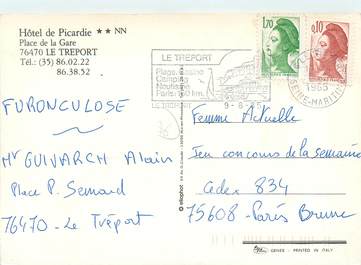 Hôtel de Picardie ★★ NN
Place de la Gare
76470 LE TREPORT
Tél.: (35) 86.02.22
86.38.52
FURONCULOSE
Mr GUIVARCH Alain
Place P. Semard
76470 - Le Tréport
LE TREPORT
Plage
Casino
Camping
Nautisme
Paris:
km.
LE TREPORT
9-8-
1,70
0,10
Femme Actuelle
Jeu concours de la semaine
cedex 834
75608 - Paris Brune
PRINTED IN ITALY